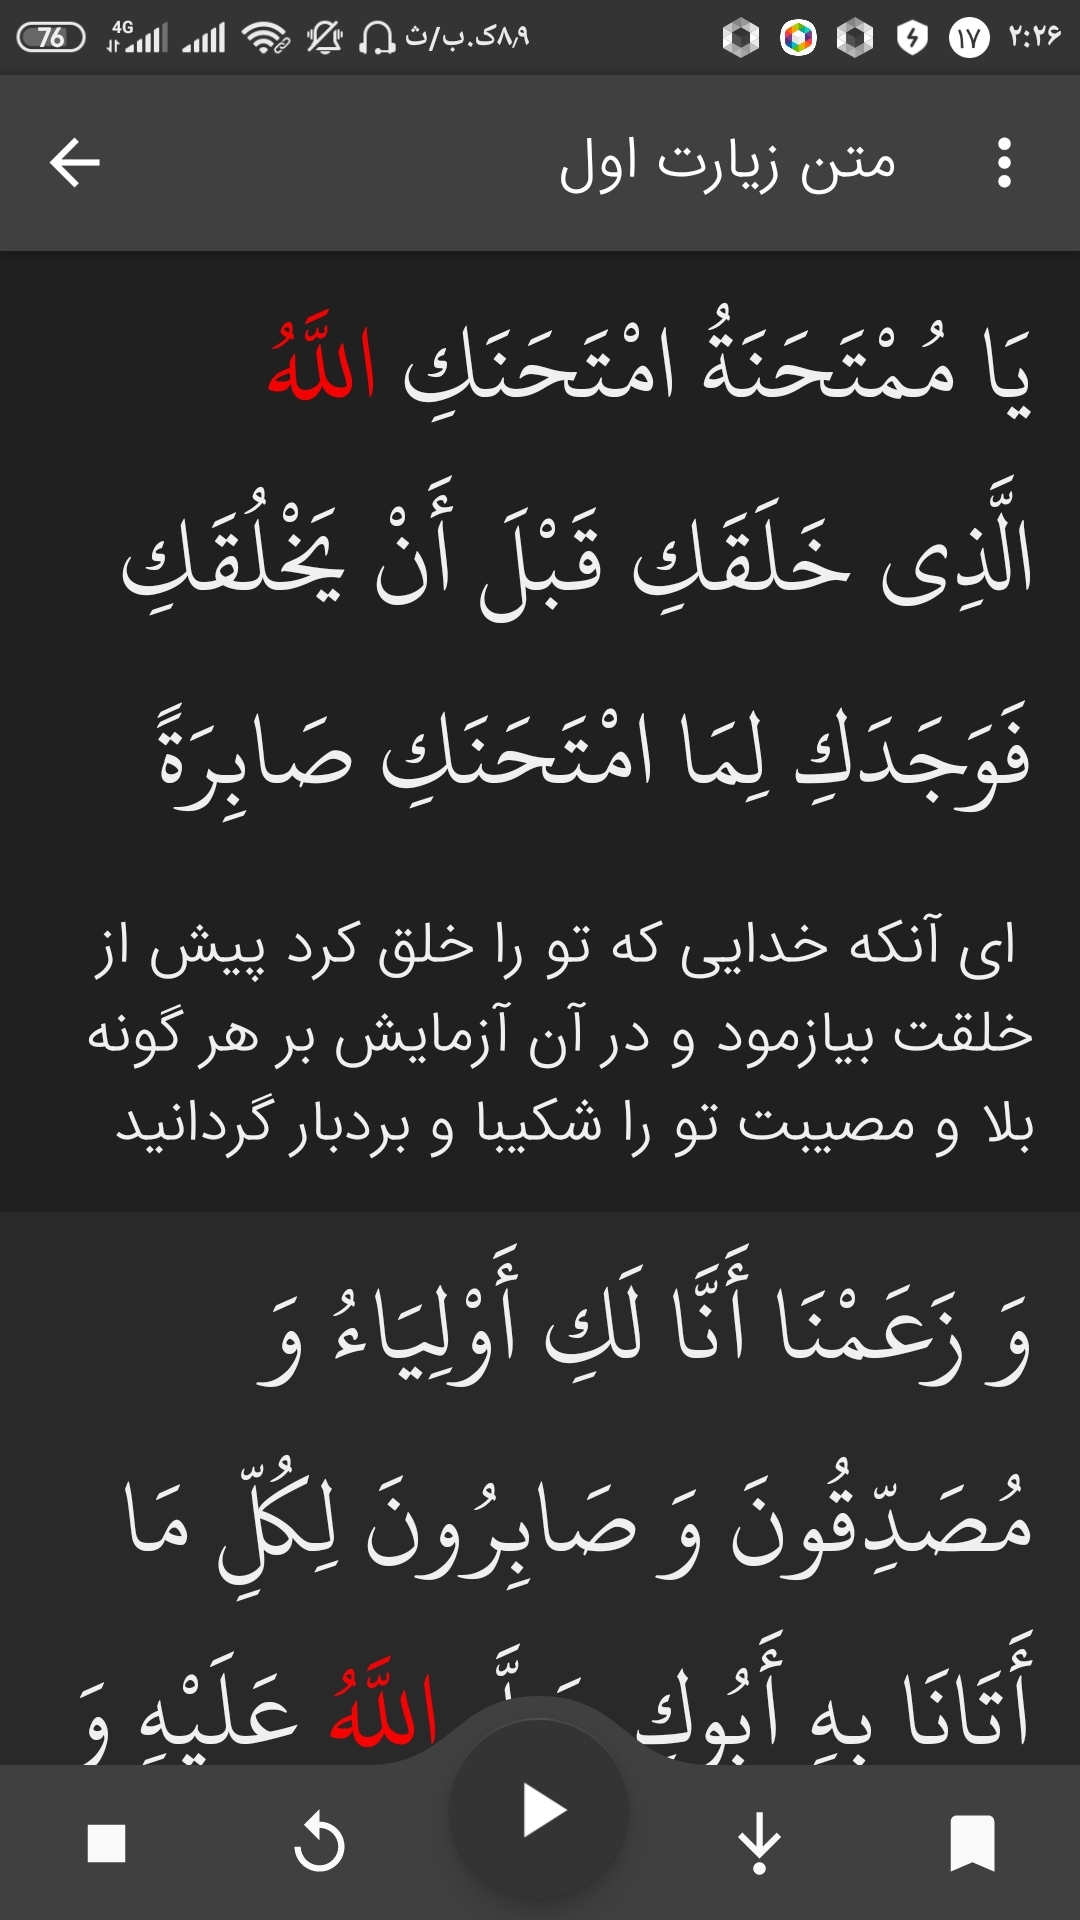 76 4G ۸٫۹ک.ب/ث ۱۷ ۲:۲۶
متن زیارت اول
يَا مُمْتَحَنَةُ امْتَحَنَكِ اللَّهُ
الَّذِى خَلَقَكِ قَبْلَ أَنْ يَخْلُقَكِ
فَوَجَدَكِ لِمَا امْتَحَنَكِ صَابِرَةً
ای آنکه خدایی که تو را خلق کرد پیش از
خلقت بیازمود و در آن آزمایش بر هر گونه
بلا و مصیبت تو را شکیبا و بردبار گردانید
وَ زَعَمْنَا أَنَّا لَكِ أَوْلِيَاءُ وَ
مُصَدِّقُونَ وَ صَابِرُونَ لِكُلِّ مَا
أَتَانَا بِهِ أَبُوكِ اللَّهُ عَلَيْهِ وَ